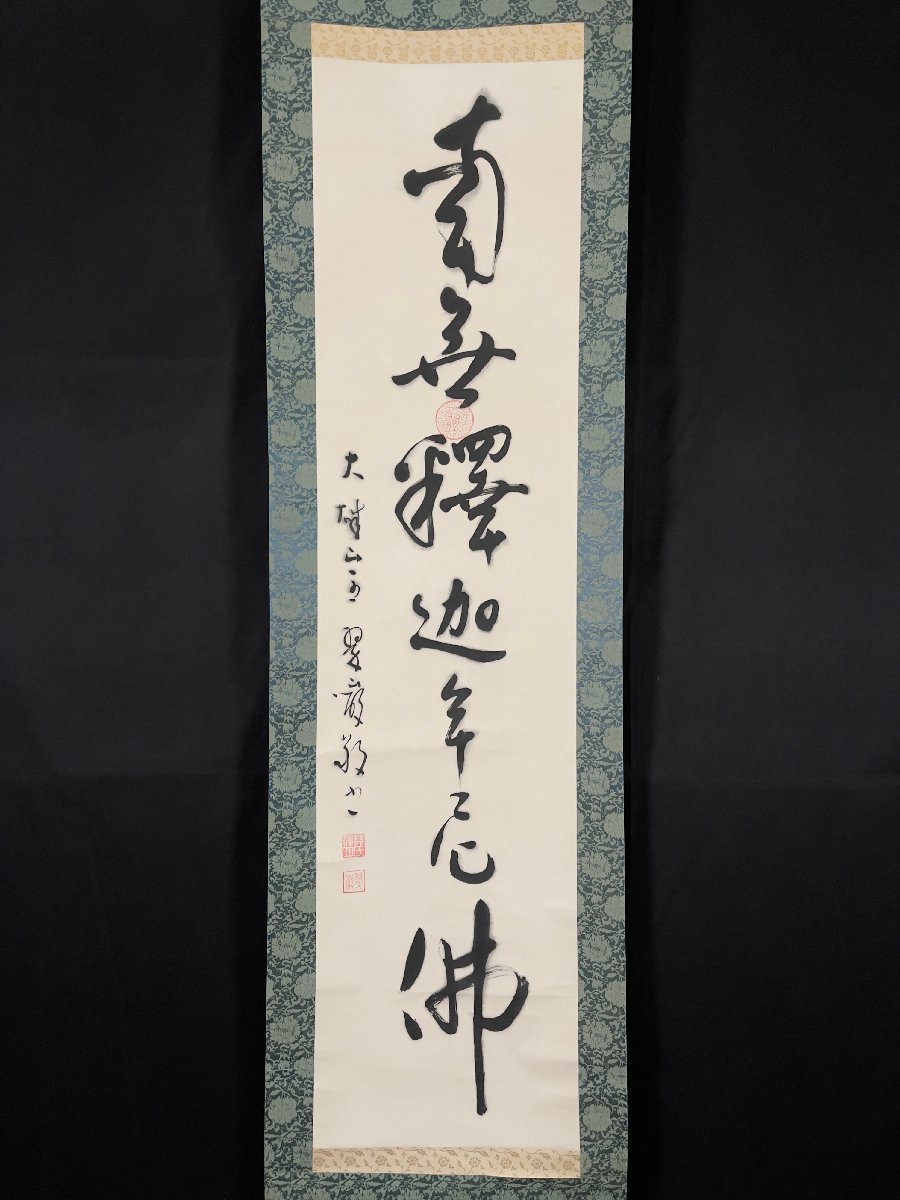 南無釋迦牟尼佛
大雄山主 翠巖敬書